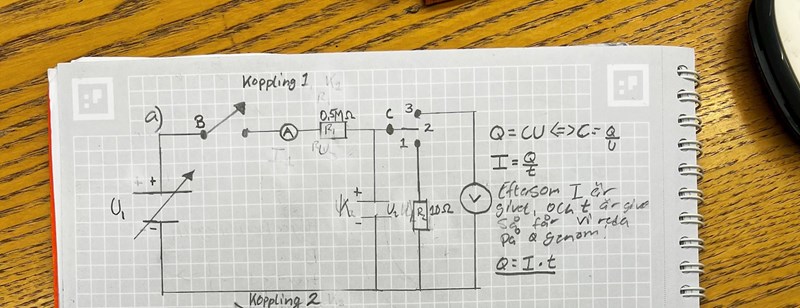 Koppling 1
a)
B
A
0.5MΩ
R₁
C
3
2
1
+ +
U₁
-
+
-
U₂
R₂
10Ω
V
Q = CU <=> C = Q/U
I = Q/t
Eftersom I är
givet, och t är
så får vi reda
på Q genom
Q = I · t
Koppling 2